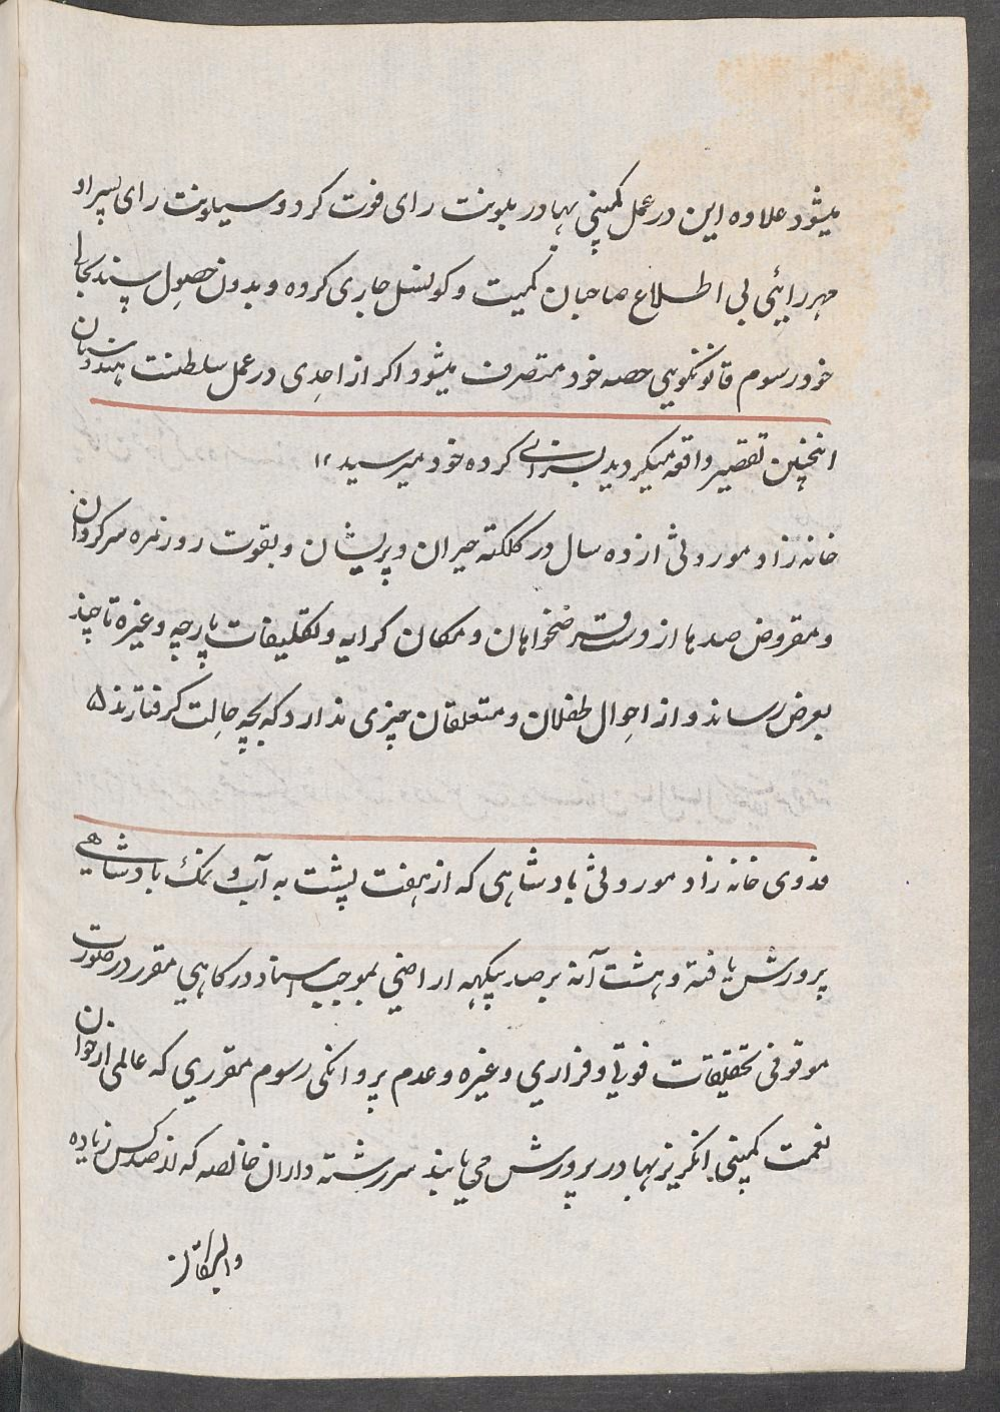 میشود علاوه این در عمل کمپنی بهادر بلونت رای فوت کرد و سیلونت رای پسر او
مهر رابی اطلاع صاحبان کمیت و کونسل جاری کروه و بدون حصول سند بجالی
خود رسوم قانونگویی حصه خود متصرف میشود اکر از احدی در عمل سلطنت هندوستان
اینچنین تقصیر واقعه میکردید بسزای کرده خود میرسید ۱۲
خانه زاد موروثی از ده سال در کلکته حیران و پریشان و بقوت روزمره سرکردان
و مقروض صدها از دست قرضخواهان و مکان کرایه و تکلیفات پارچه و غیره تا چند
بعرض رساند و از احوال طفلان و متعلقان چیزی ندارد که بچه حالت کرفتارند ۵
فدوی خانه زاد موروثی بادشاهی که از هفت پشت به آب و نمک بادشاهی
پرورش یافته و هشت آنه بر صد بیکهه اراضی بموجب اسناد درکاهی مقرر در صورت
موقوفی تحقیقات فوتی و فراری و غیره و عدم پروانکی رسوم مقرری که عالمی از خوان
نعمت کمپنی انکریز بهادر پرورش می یابند سررشته داران خالصه که از صد کس زیاده